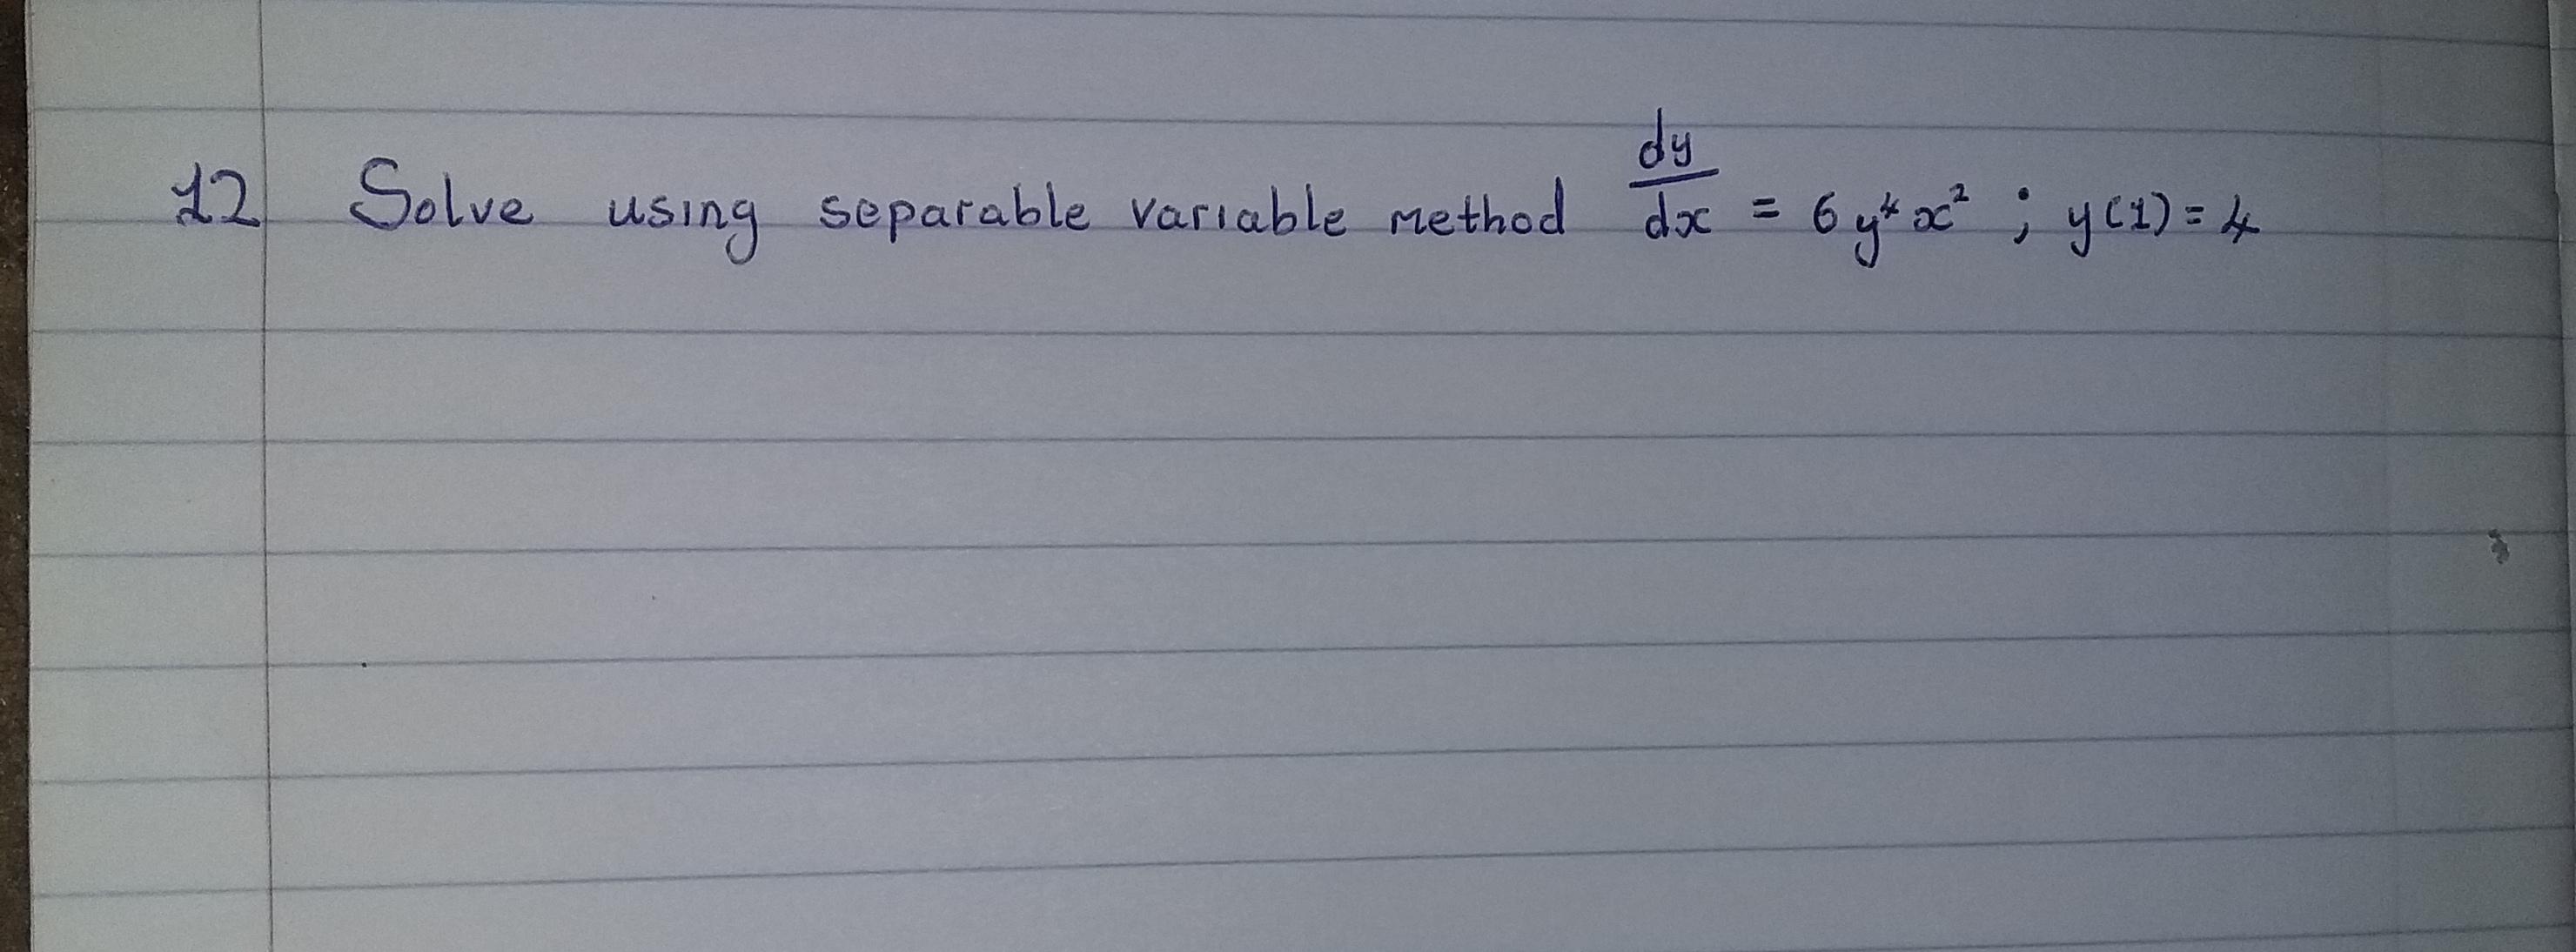 12 Solve using separable variable method dy/dx = 6y⁴x² ; y(1) = 4